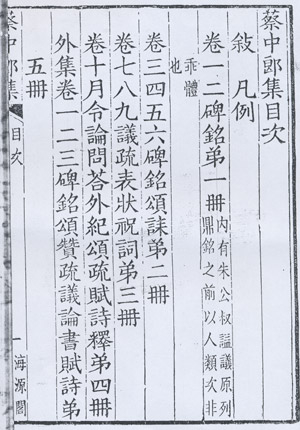 蔡中郎集目次
敍　凡例
卷一二碑銘弟一冊
內有朱公叔謚議原列
鼎銘之前以人類次非
乖體
也
卷三四五六碑銘頌誄弟二冊
卷七八九議疏表狀祝詞弟三冊
卷十月令論問荅外紀頌疏賦詩釋弟四冊
外集卷一二三碑銘頌贊疏議論書賦詩弟
五冊
蔡中郎集　目次　一　海源閣